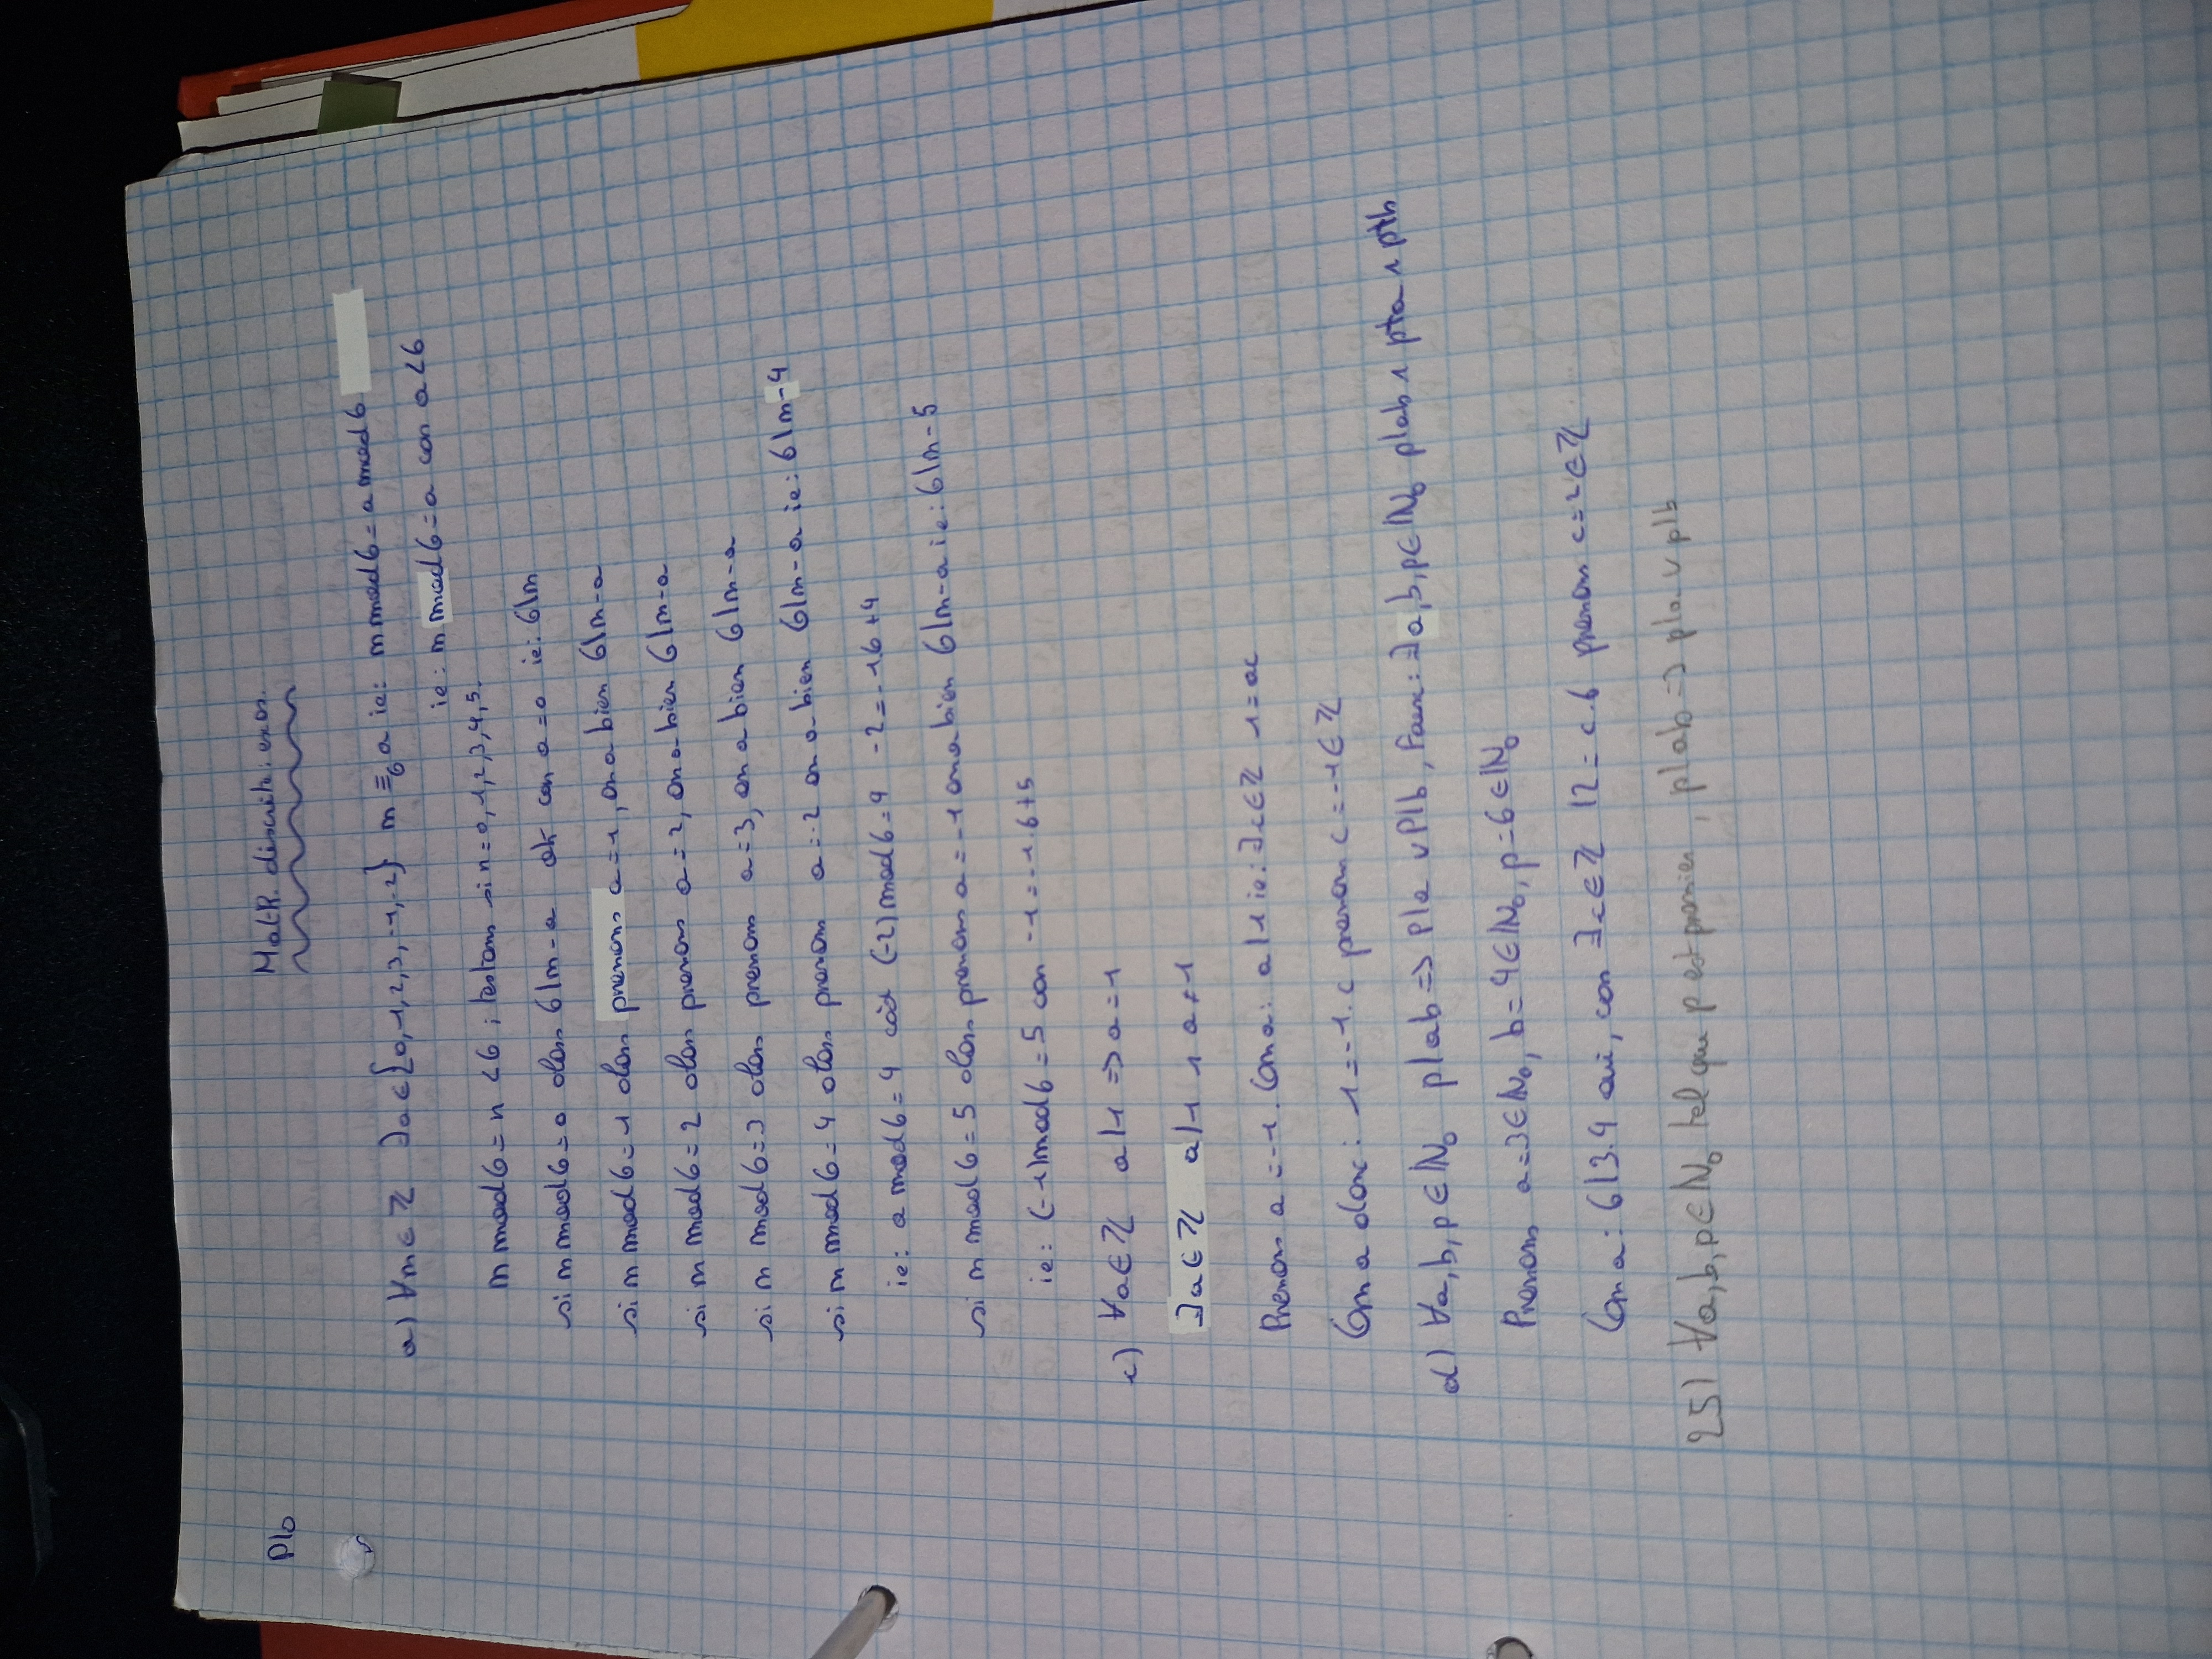 Math. discrète: exos.
P10
a) ∀m ∈ ℤ ∃a ∈ {0,1,2,3,-1,-2} m ≡₆ a ie: m mod 6 = a mod 6
ie: m mod 6 = a car a < 6
m mod 6 = n < 6 ; testons si n = 0,1,2,3,4,5.
si m mod 6 = 0 alors 6|m-a ok car a = 0 ie: 6|m
si m mod 6 = 1 alors prenons a = 1, on a bien 6|m-a
si m mod 6 = 2 alors prenons a = 2, on a bien 6|m-a
si m mod 6 = 3 alors prenons a = 3, on a bien 6|m-a
si m mod 6 = 4 alors prenons a = -2 on a bien 6|m-a ie: 6|m-4
ie: a mod 6 = 4 càd (-2) mod 6 = 4 -2 = -1.6+4
si m mod 6 = 5 alors prenons a = -1 on a bien 6|m-a ie: 6|m-5
ie: (-1) mod 6 = 5 car -1 = -1.6+5
c) ∀a ∈ ℤ a|1 => a = 1
∃a ∈ ℤ a|1 ∧ a ≠ 1
Prenons a = -1. On a: a|1 ie: ∃c ∈ ℤ 1 = ac
On a donc: 1 = -1.c prenons c = -1 ∈ ℤ
d) ∀a,b,p ∈ ℕ₀ p|ab => p|a ∨ p|b, Faux: ∃a,b,p ∈ ℕ₀ p|ab ∧ p∤a ∧ p∤b
Prenons a = 3 ∈ ℕ₀, b = 4 ∈ ℕ₀, p = 6 ∈ ℕ₀
On a: 6|3.4 oui, car ∃c ∈ ℤ 12 = c.6 prenons c = 2 ∈ ℤ
25) ∀a,b,p ∈ ℕ₀ tel que p est premier, p|ab => p|a ∨ p|b